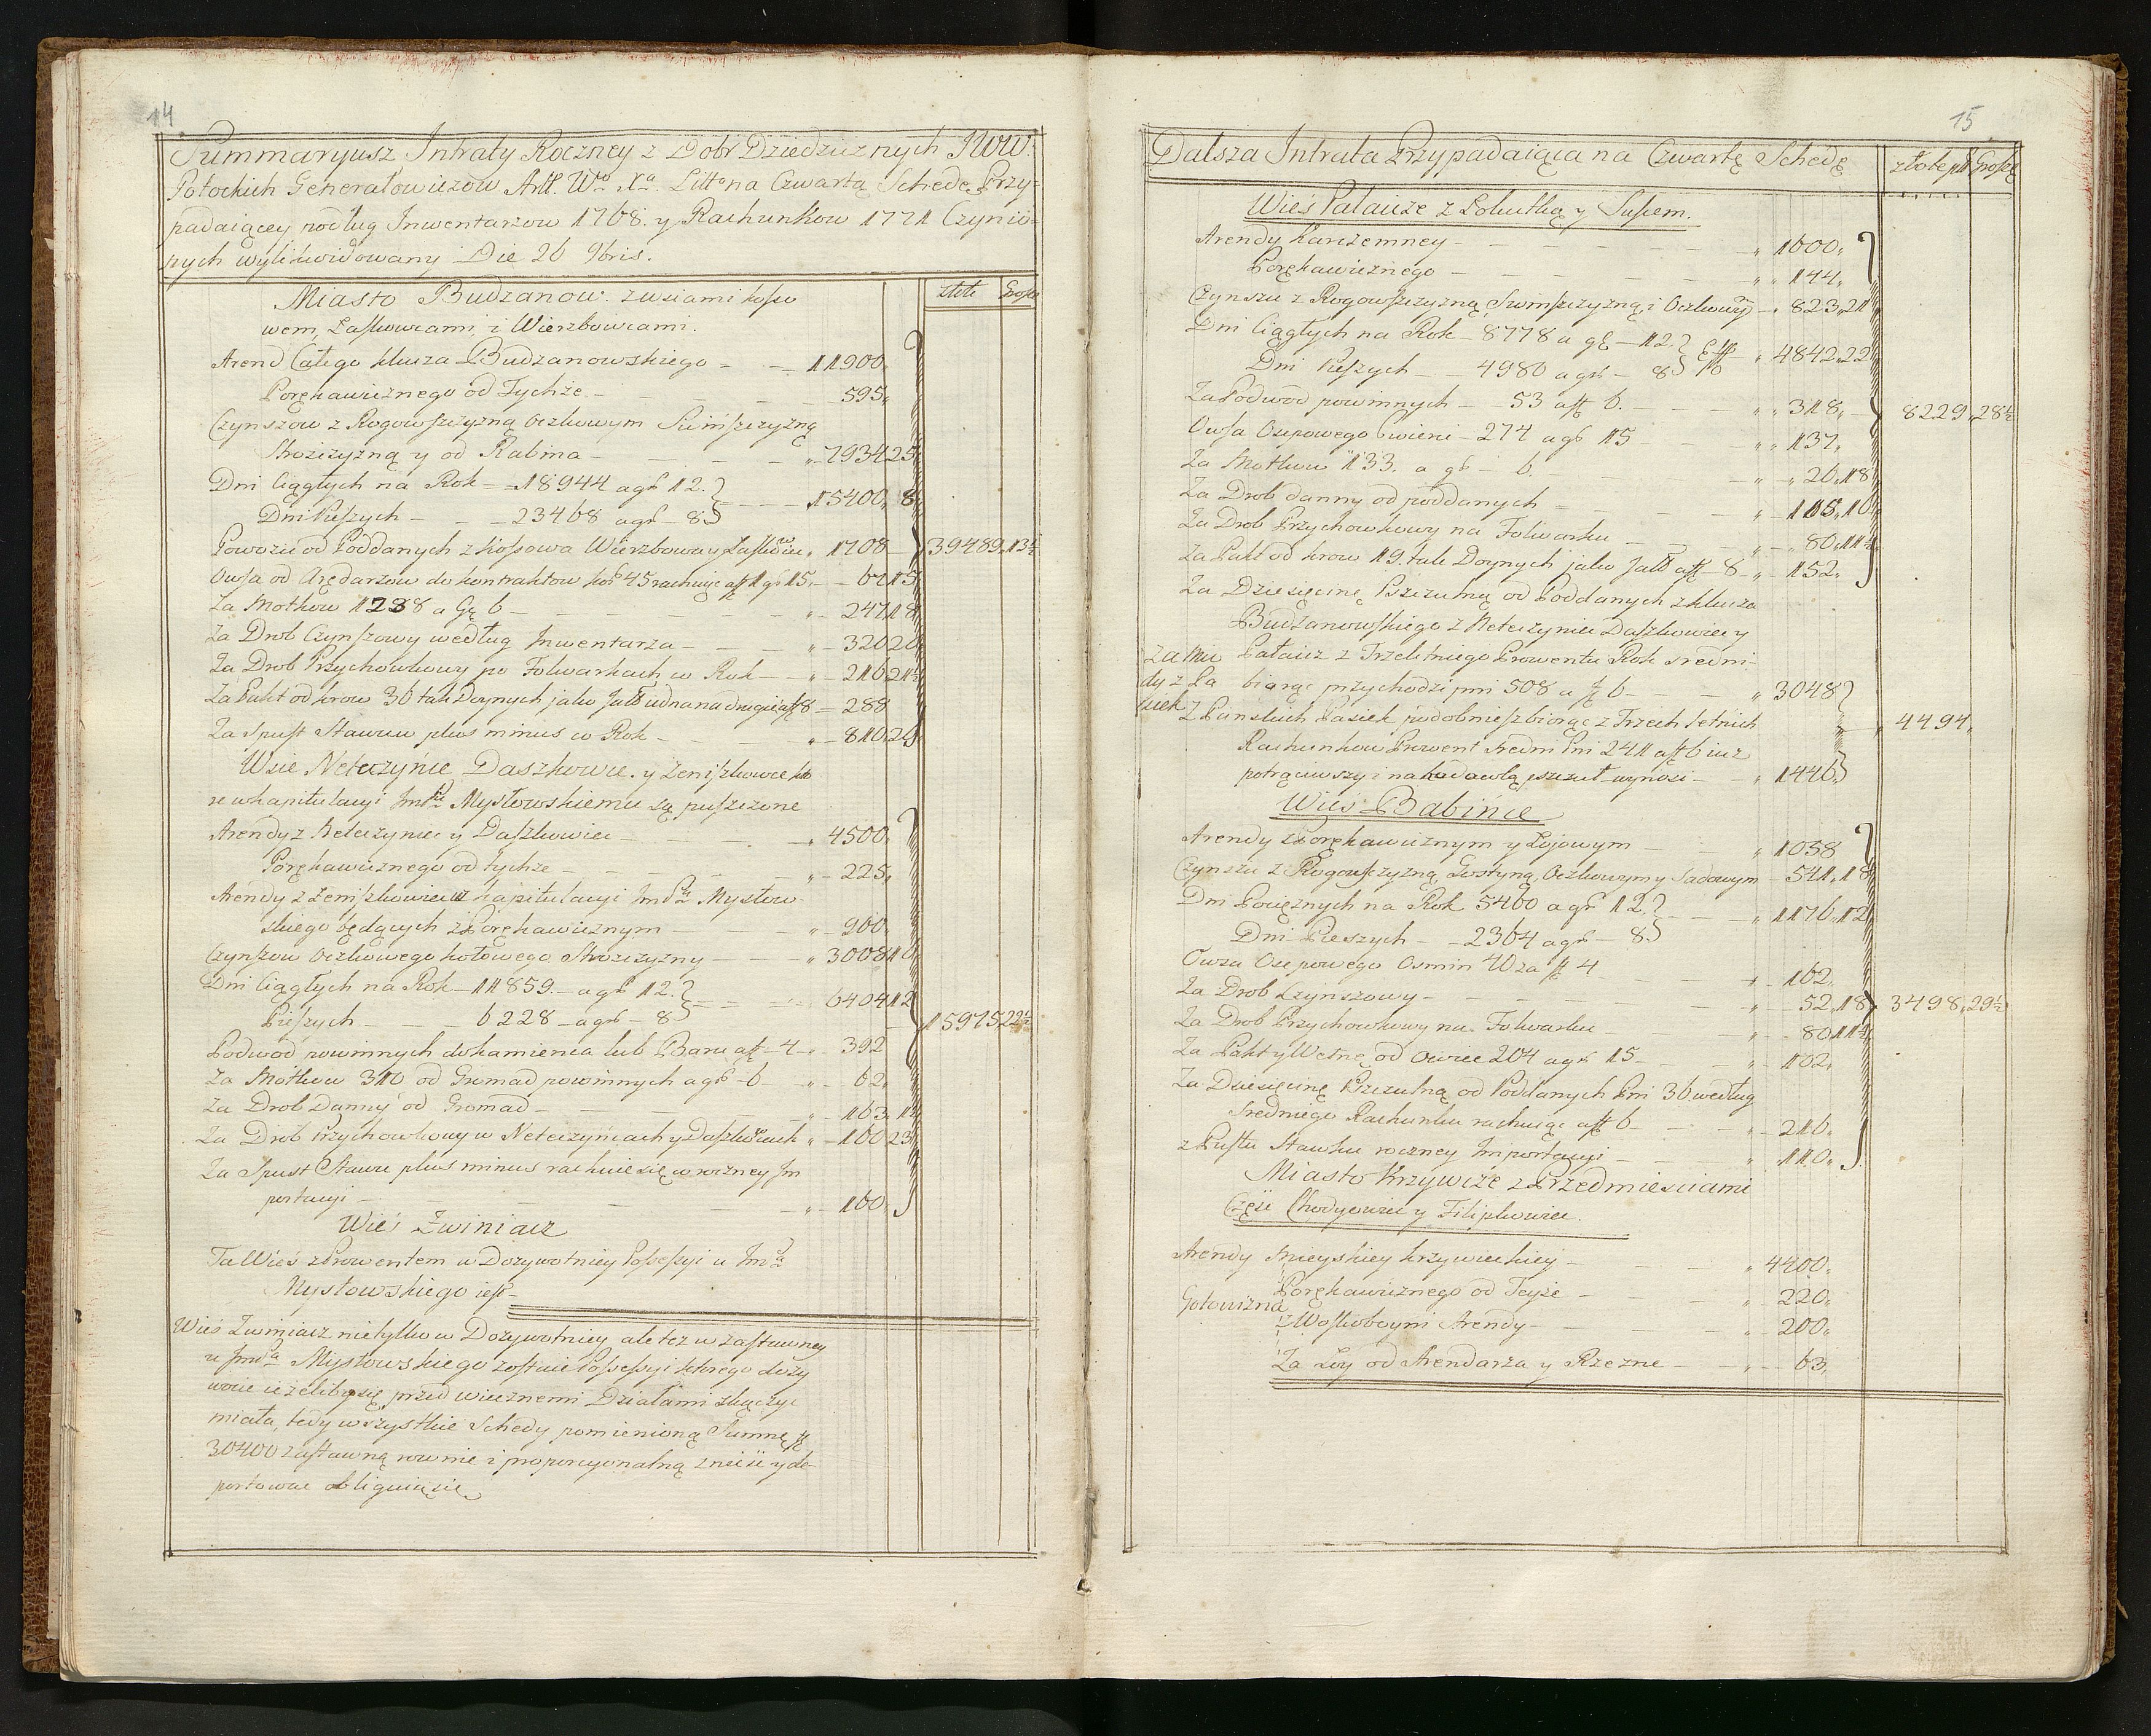 14
Summaryusz Intraty Roczney z Dobr Dziedzicznych JWW.
Potockich Generałowiczow Artl. Wo Xa. Litto na Czwartą Schedę Przy-
padaiącey podług Inwentarzow 1768. y Rachunkow 1771 Czynio-
nych wylikwidowany Die 26 9bris.
złote Grosze
Miasto Budzanow. z wsiami Koso
wem, Laskowcami i Wierzbowcami.
Arend Całego klucza Budzanowskiego - - 11900,
Poręhawicznego od Tychże - 595,
Czynszow z Rogowszczyzną oczkowym
Stroszczyzną y od Rabina - 7934 25
Dni Ciągłych na Rok - 18944 a gr 12.
Dni Pieszych - 23468 a gr - 8 15400, 8
Powozu od Poddanych z Kossowa Wierzbowca y 1708 39489,13½
Owsa od Arędarzow do kontraktow 45 rachuiąc a 1 gr 15 67 15
Za Motkow 1238 a Gr 6 - 247 18
Za Drob Czynszowy według Inwentarza - 320 20
Za Drob Przychowkowy po Folwarkach w Rok - 216 21½
Za Pakt od krow 36 tak Doynych jako 8 - 288
Za Spust Stawu plus minus w Rok - 810 26
Wsie Neteczyńce Daszkowce. y Leniszkowce
w kapitulacyi Mysłowskiemu są puszczone
Arendy z Neteczyniec y Daszkowiec - 4500,
Poręhawicznego od tychże - 225,
Arendy z Leniszkowiec kapitulacyi Mysłow
skiego będących z Poręhawicznym - 900,
Czynszow Oczkowego kołowego Stroszczyzny - 3008 10
Dni Ciągłych na Rok - 11859. - a gr 12.
Pieszych - 6228 - a gr - 8 6404 12
15975,22½
Podwod powinnych do kamienca lub Baru a - 4 - 392
Za Motkow 310 od Gromad powinnych a gr - 6 - 62,
Za Drob Danny od Gromad - 163,
Za Drob Przychowkowy w Neteczyńcach y Daszkowcach 160 23
Za Spust Stawu plus minus rachuie się w roczney Im
portacyi - 160,
Wieś Zwiniacz
Ta Wieś z Prowentem w Dozywotniey Possessyi u
Mysłowskiego iest -
Wieś Zwiniacz nietylko w Dozywotniey ale tez w zastawney
u Mysłowskiego zostaie Possessyi którego dozy
wocie iezeliby się przed wiecznemi Działami skączyć
miało, tedy wszystkie Schedy pomienioną Summę
30400 zastawną rownie i proporcyonalną znieść y de
portować obliguią się
15
Dalsza Intrata Przypadaiąca na Czwartę Schedę
złote pol Grosze
Wieś Pałaucze z Łoluitką y Susłem.
Arendy Karczemney - 1600,
Poręhawicznego - 144,
Czynszu z Rogowszczyzną, i Oczkowy - 823,21
Dni Ciągłych na Rok - 8778 a gr - 12.
Dni Pieszych - 4980 a gr - 8 4842,22
Za Podwod powinnych - 53 a 6. - 318,
8229,28½
Owsa Osepowego Cwierci - 274 a gr 15 - 137,
Za Motkow 133. a gr - 6. - 26,18
Za Drob danny od poddanych - 105,16
Za Drob Przychowkowy na Folwarku - 80,11½
Za Pakt od krow 19. tak Doynych jako a - 8 - 152,
Za Dziesięcinę Pszczulną od Poddanych z klucza
Budzanowskiego z Neteczyniec Daszkowiec y
za miu Pałaucz z Trzeletniego Prowentu Rok sredni-
dy z Pa biorąc przychodzi pni 508 a 6 - 3048
siek z Panskich Pasiek podobniesz biorąc z Trzech letnich
4494,
Rachunkow Prowent sredni Pni 241 a 6 iuz
potrąciwszy i na kadawlą pszczuł wynosi - 1446
Wieś Babińce
Arendy z Poręhawicznym y Łojowym - 1058
Czynszu z Rogowszczyzną, Gostyną, Oczkowym y Sadowym - 541,18
Dni Pociężnych na Rok 5460 a gr 12.
Dni Pieszych - 2364 a gr - 8 1176,12
Owsa Osepowego Osmin 40 za 4 - 162,
Za Drob Czynszowy - 52,18
3498,29½
Za Drob Przychowkowy na Folwarku - 80 11½
Za Pakt y Wełnę od Owiec 204 a gr 15 - 102,
Za Dziesięcinę Pszczulną od Poddanych Pni 36 według
Sredniego Rachunku rachuiąc a 6 - 216,
z Pustu Stawku roczney Importacyi - 110,
Miasto Krzywcze z Przedmiesciami
Częśc Chodyowiec y Filipkowiec.
Arendy Mieyskiey krzywieckiey - 4400,
Poręhawicznego od Teyże - 220,
Gotowizna
z Woskoboyni Arendy - 200,
Za Łoy od Arendarza y Rzeżne - 63,